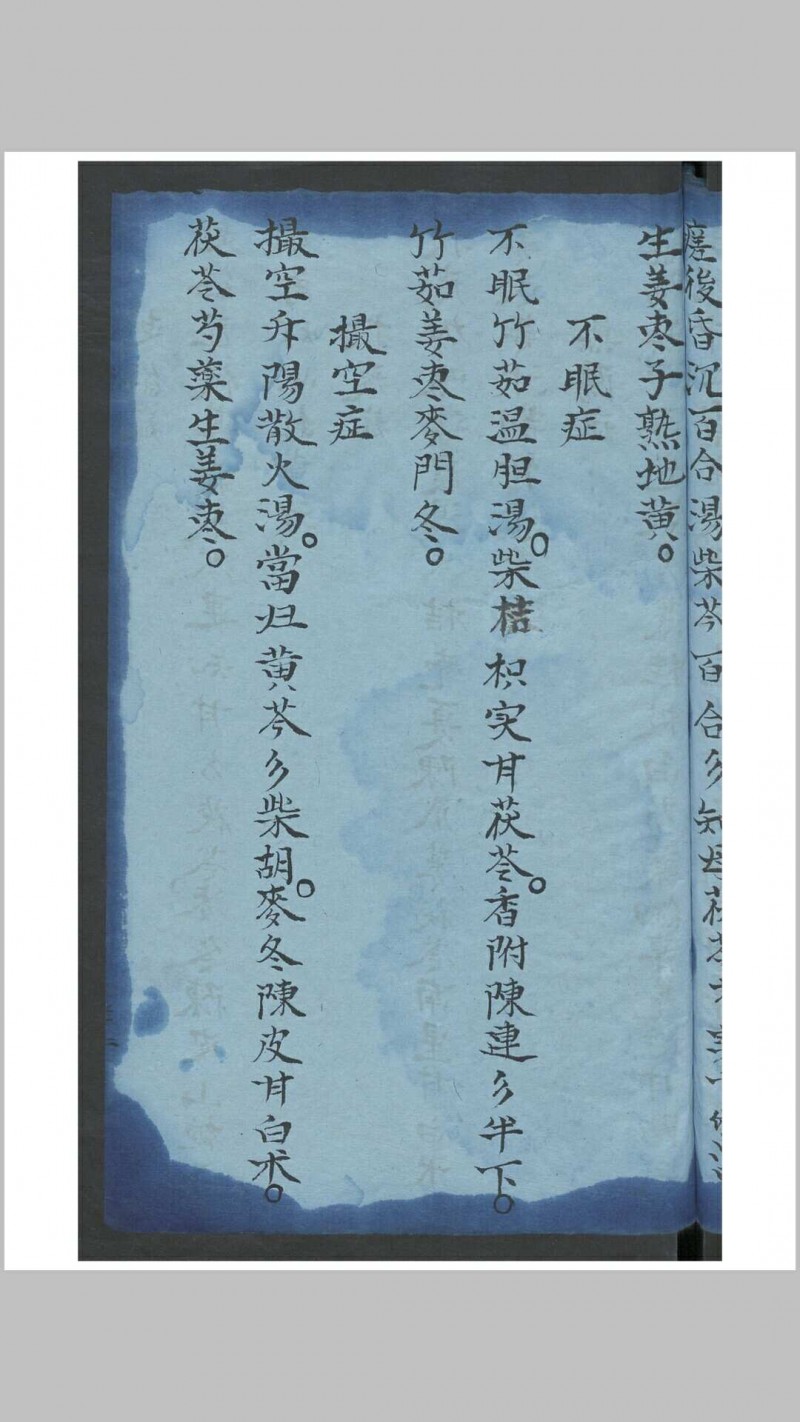 瘥後昏沉百合湯柴芩百合彡知母茯苓
生姜枣子熟地黄。
不眠症
不眠竹茹温胆湯。柴桔枳実甘茯苓。香附陳連彡半下。
竹茹姜枣麥門冬。
撮空症
撮空升陽散火湯。當归黄芩彡柴胡。麥冬陳皮甘白术。
茯苓芍薬生姜枣。